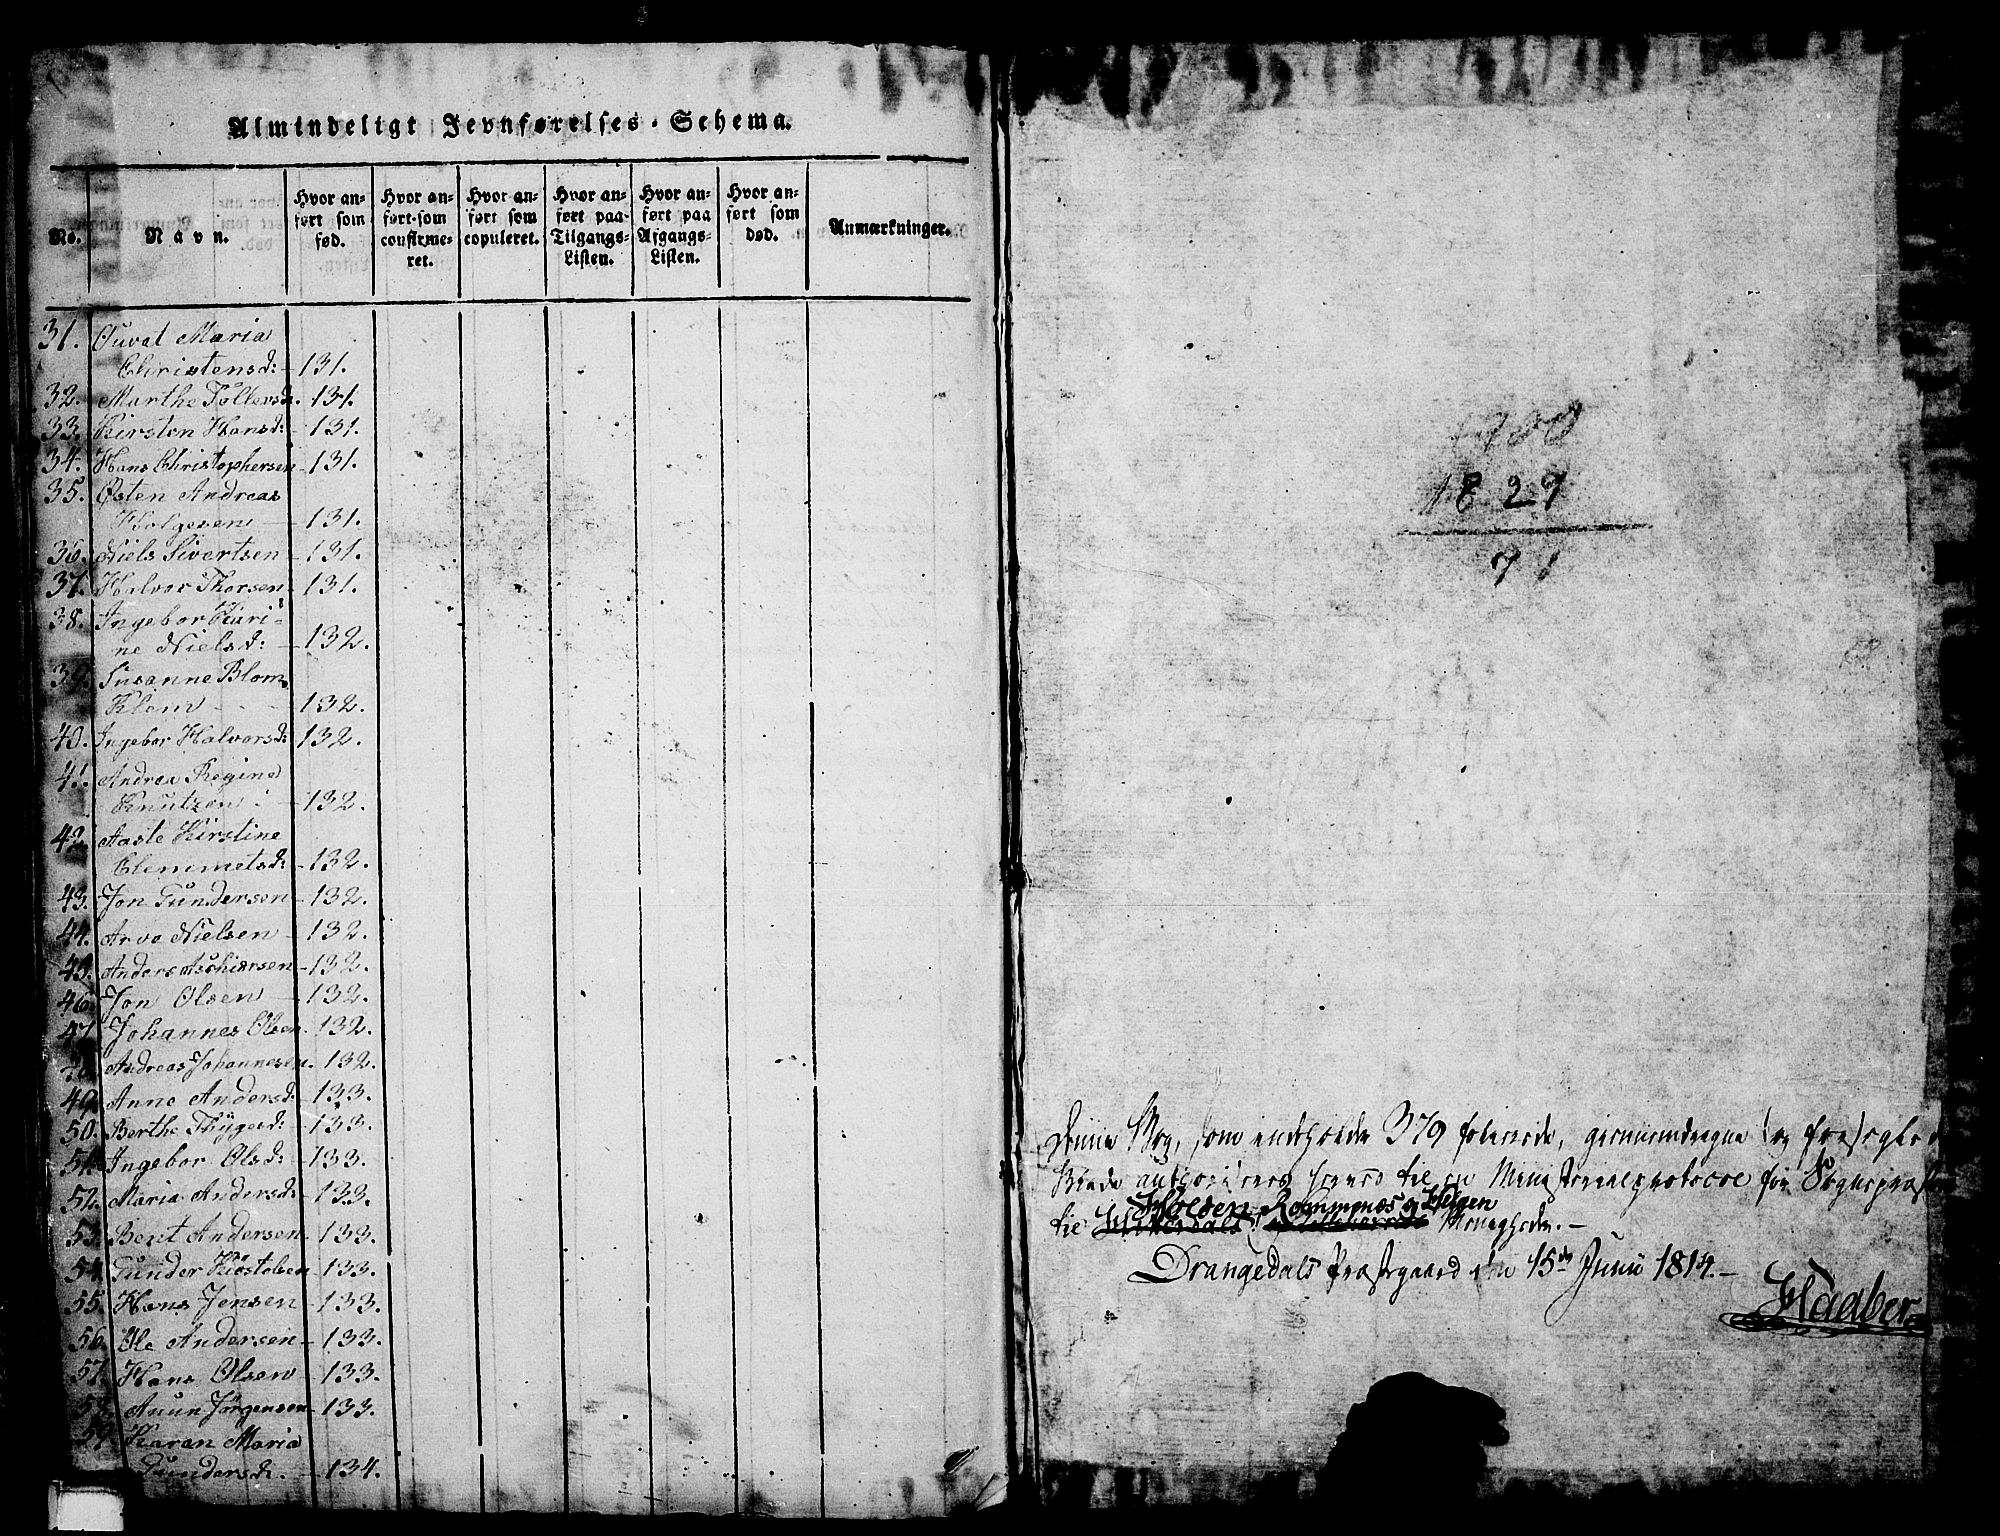 Almindeligt Jevnførelses-Schema.
No.
Navn.
Hvor an-
ført som
fød.
Hvor an-
ført som
confirme-
ret.
Hvor an-
ført som
copuleret.
Hvor an-
ført paa
Tilgangs-
Listen.
Hvor an-
ført paa
Afgangs-
Listen.
Hvor an-
ført som
død.
Anmærkninger.
31. Maria
Christensd: - 131.
32. Marthe Tollevsd. 131.
33. Kirsten Hansd: - 131.
34. Hans Christophersen - 131.
35. Østen Andreas
Holgesen - 131.
36. Niels Sivertsen - 131.
37. Halvor Thorsen - 131.
38. Ingebor Kari-
ne Nielsd: - 132.
39. Susanne Blom
Klem - - - 132.
40. Ingebor Halvorsd: 132.
41. Andrea Regine
Knutzen : - 132.
42. Aaste Kirstine
Clemmetsd: - 132.
43. Jon Gundersen - 132.
44. Arve Nielsen - 132.
45. Anders - 132.
46. Jon Olsen - 132.
47. Johannes Olsen - 132.
Andreas Johannesen. 132.
49. Anne Andersd: - 133.
50. Berthe Thygesd: - 133.
51. Ingebor Olsd: - 133.
52. Maria Andersd: - 133.
53. Bent Andersen - 133.
54. Gunder Kiøstolsen - 133.
55. Hans Jensen - 133.
56. Ole Andersen - 133.
57. Hans Olsen - 133.
58. Anun Jørgensen - 133.
59. Karen Maria
Gundersd. - 134.
1900
1829
71
Denne Bog, som indeholder 379 folierede, giennemdragne og forseglede
Blade authoriseres herved til en Ministerialprotocol for Sognepræsten
Holden Rommenæs og Helgen
til Menigheder. -
Drangedals Præstegaard den 15de Junii 1814. -